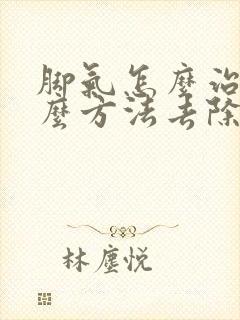 脚氣怎麼治
麼方法去除
林塵悦